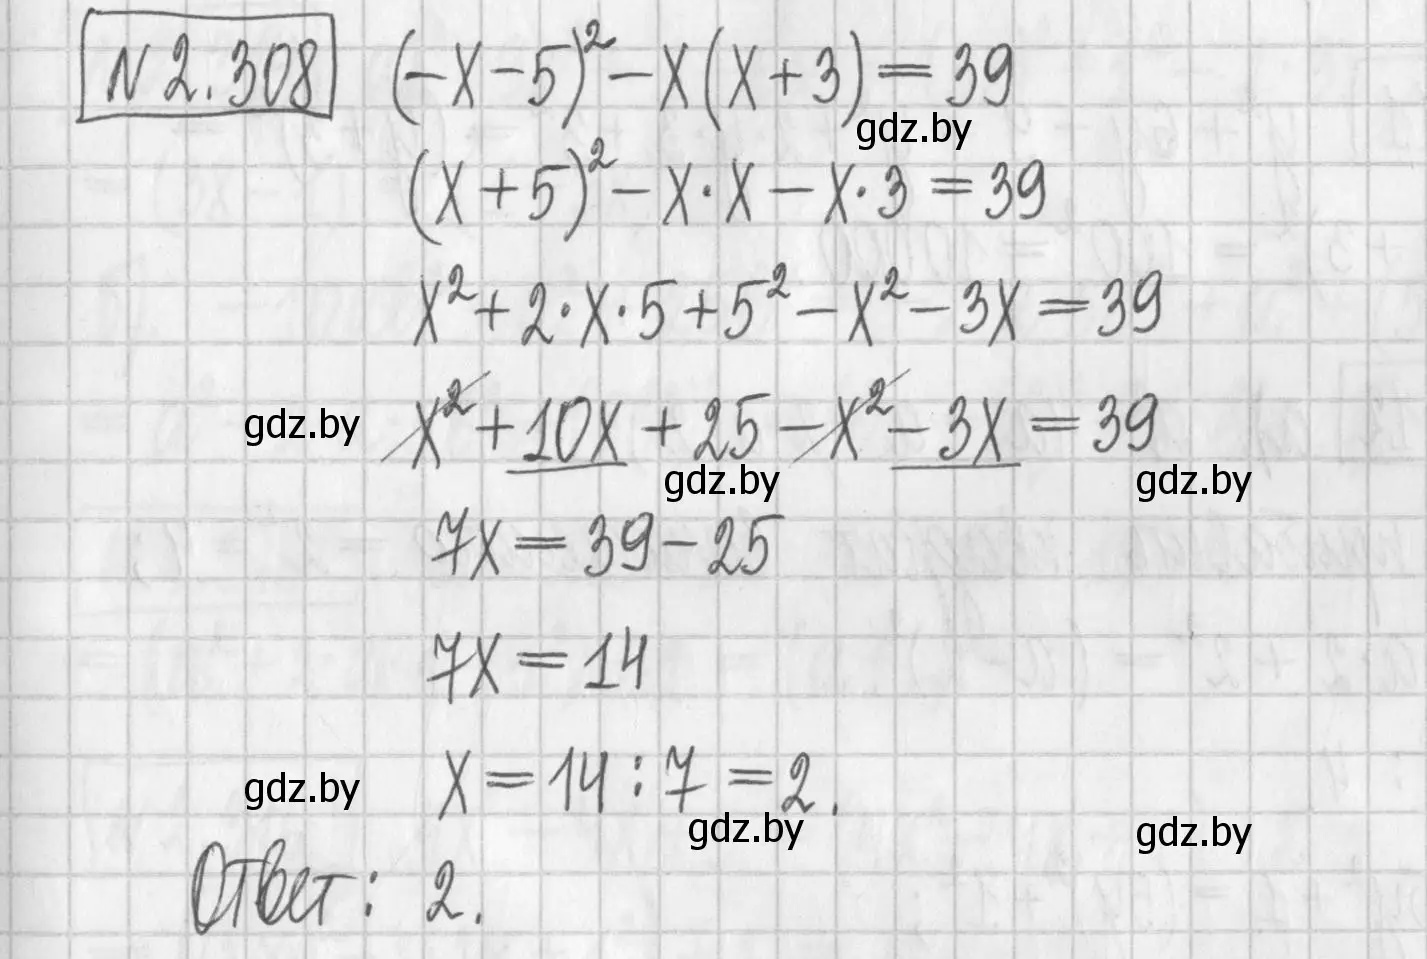 № 2.308 (-x-5)² - x(x+3) = 39
gdz.by
(x+5)² - x·x - x·3 = 39
x² + 2·x·5 + 5² - x² - 3x = 39
gdz.by x² + 10x + 25 - x² - 3x = 39
gdz.by gdz.by
7x = 39 - 25
7x = 14
gdz.by x = 14 : 7 = 2.
gdz.by gdz.by
Ответ: 2.